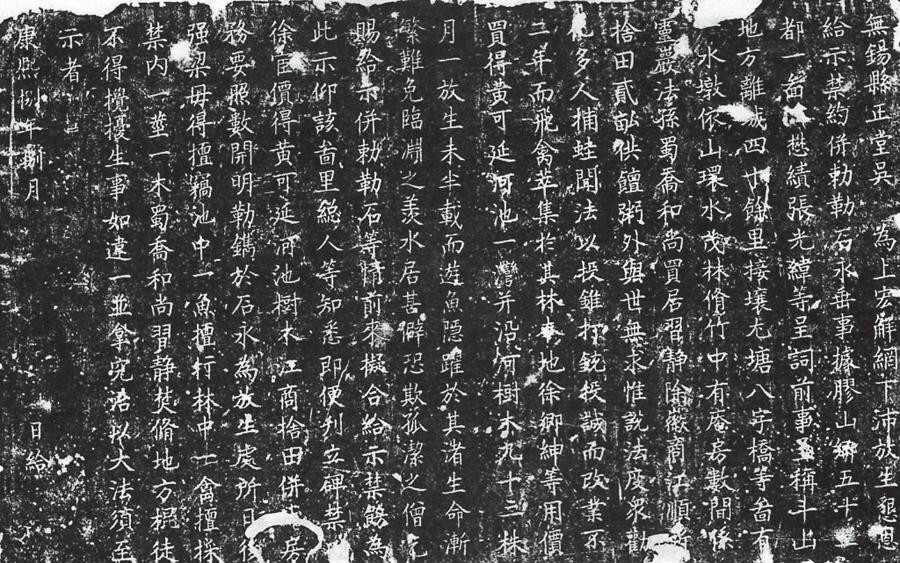 無錫縣正堂吳　為上宏解網下沛放生懇恩
給示禁約併勅勒石永垂事據膠山鄉五十
都一啚懋績張光緯等呈詞前事呈稱斗山
地方離城四十餘里接壤尤塘八字橋等啚有
水墩依山環水茂林脩竹中有庵房數間係
靈巖法孫蜀喬和尚買居習靜除徽商江順
捨田貳畝供饘粥外與世無求惟說法度眾勸
化多人捕蛙聞法以投錐打銃投誠而改業不
二年而飛禽萃集於其林本地徐鄉紳等用價
買得黃可延河池一灣并沿河樹木九十三株
月一放生未半載而遊魚隱躍於其渚生命漸
繁難免臨淵之羨水居甚僻恐欺孤潔之僧乞
賜給示併勅勒石等情前來擬合給示禁飭為
此示仰該啚里總人等知悉即便刊立碑禁
徐宦價得黃可延河池樹木江商捨田併房
務要照數開明勒鐫於石永為放生處所日後
强梁毋得擅竊池中一魚擅行林中一禽擅採
禁內一莖一木蜀喬和尚習靜焚脩地方棍徒
不得攪擾生事如違一並拿究治以大法須至
示者
康熙捌年捌月　日給